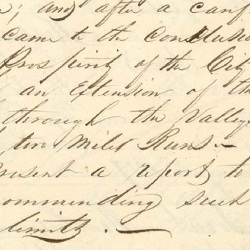 and after a conf
came to the conclusio
Prosperity of the Cit
an Extension of th
through the Valley
two Miles Runs.—
resent a report to
commending such
limits.—